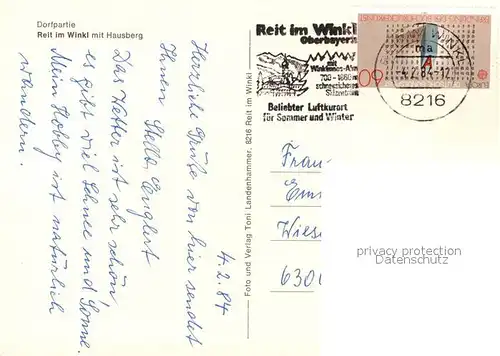 Dorfpartie
Reit im Winkl mit Hausberg
4.2.84
Herzliche Grüße von hier sendet
Ihnen Stella Englert
Das Wetter ist sehr schön,
es gibt viel Schnee und Sonne.
Mein Hobby ist natürlich
wandern.
Foto und Verlag Toni Landenhammer, 8216 Reit im Winkl
Reit im Winkl
Oberbayern
mit
Winklmoos-Alm
700 - 1860 m
schneereiches
Skizentrum
Beliebter Luftkurort
für Sommer und Winter
WINKL
ma
-4.2.84-12
8216
60
Frau
Wies
630
privacy protection
Datenschutz